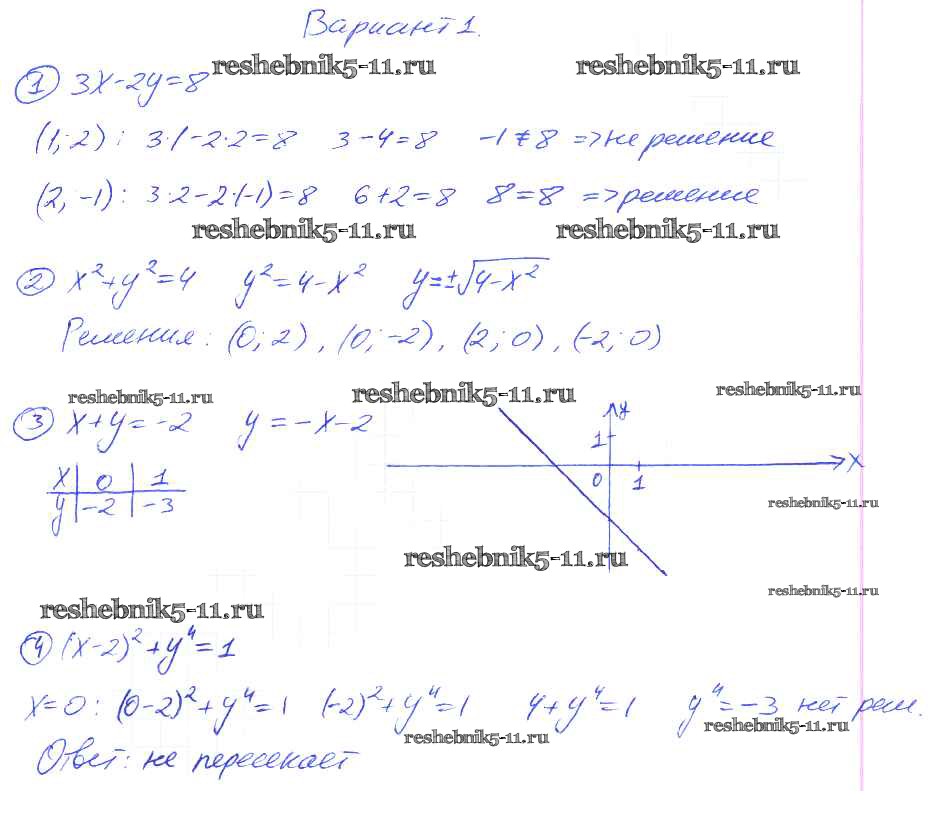 Вариант 1.
reshebnik5-11.ru reshebnik5-11.ru
① 3x-2y=8
(1; 2): 3·1-2·2=8 3-4=8 -1≠8 =>не решение
(2, -1): 3·2-2·(-1)=8 6+2=8 8=8 =>решение
reshebnik5-11.ru reshebnik5-11.ru
② x²+y²=4 y²=4-x² y=±√4-x²
Решения: (0; 2), (0; -2), (2; 0), (-2; 0)
reshebnik5-11.ru reshebnik5-11.ru reshebnik5-11.ru
③ x+y=-2 y=-x-2
y
1
x
0 1
x 0 1
y -2 -3
reshebnik5-11.ru
reshebnik5-11.ru
reshebnik5-11.ru
reshebnik5-11.ru
④ (x-2)²+y⁴=1
x=0: (0-2)²+y⁴=1 (-2)²+y⁴=1 4+y⁴=1 y⁴=-3 нет реш.
reshebnik5-11.ru reshebnik5-11.ru
Ответ: не пересекает